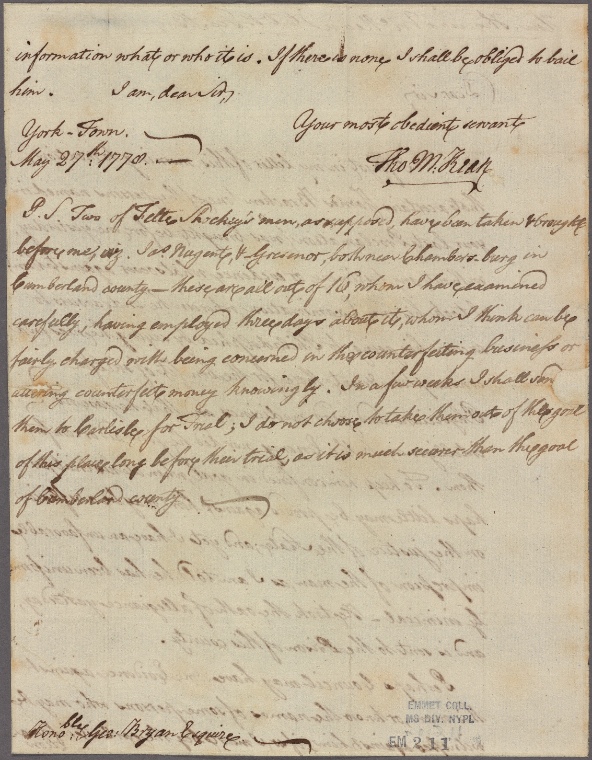 information what or who it is. If there is none I shall be obliged to bail
him. I am, dear Sir,
Your most obedient servant
York-Town.
May 27th. 1778.
Tho M:Kean
P.S. Two of Shockey's men, as supposed, have been taken & brought
before me, viz. Jas. Nugent, & Grosenor, both near Chambersburg in
Cumberland county — these are all out of 16, whom I have examined
carefully, having employed three days about it, whom I think can be
fairly charged with being concerned in the counterfeiting business or
uttering counterfeit money knowingly. In a few weeks I shall
them to Carlisle for Trial; I do not choose to take them out of the goal
of this place long before their trial, as it is much securer than the goal
of Cumberland county.
Honoble. Geo: Bryan Esquire
EMMET COLL.
MS DIV. NYPL
EM 211